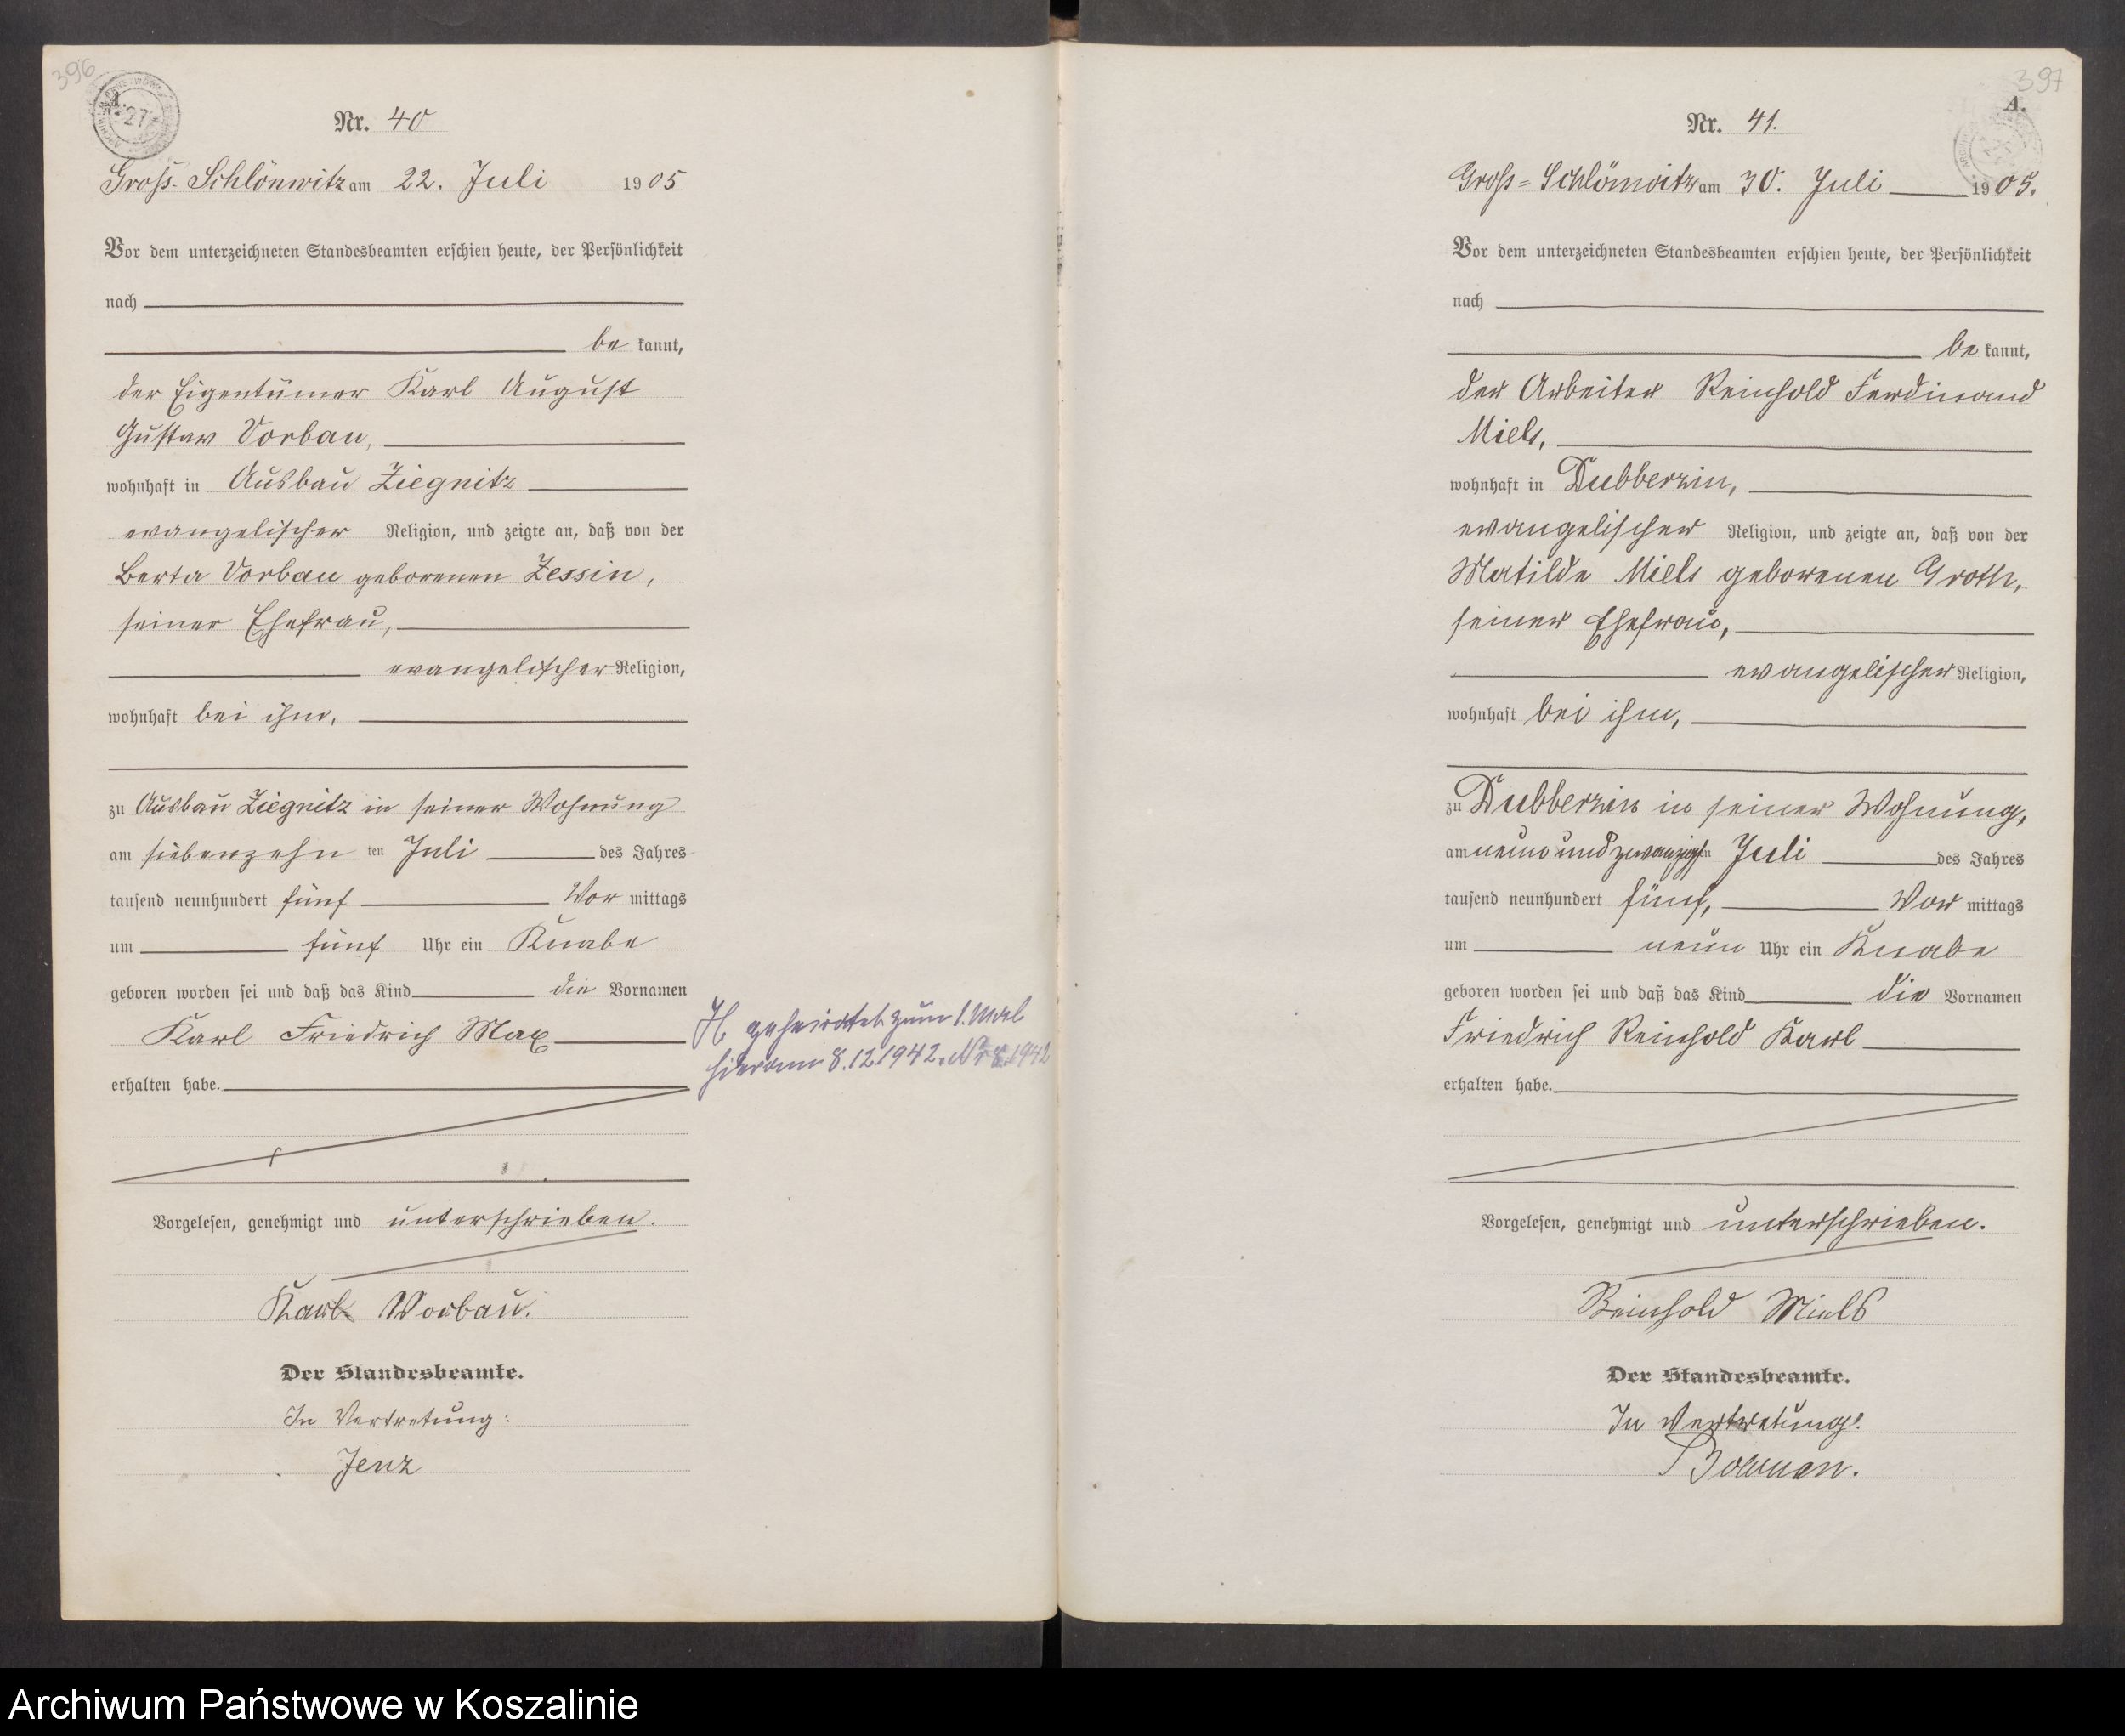 396
A.
Nr. 40
Gross-Schlönwitz am 22. Juli 1905
Vor dem unterzeichneten Standesbeamten erschien heute, der Persönlichkeit
nach
be kannt,
der Eigentümer Karl August
Gustav Vorbau,
wohnhaft in Ausbau Ziegnitz
evangelischer Religion, und zeigte an, daß von der
Berta Vorbau geborenen Zessin,
seiner Ehefrau,
evangelischer Religion,
wohnhaft bei ihm,
zu Ausbau Ziegnitz in seiner Wohnung
am siebenzehn ten Juli des Jahres
tausend neunhundert fünf Vor mittags
um fünf Uhr ein Knabe
geboren worden sei und daß das Kind die Vornamen
Karl Friedrich Max
erhalten habe.
geheiratet zum 1. Mal
hier am 8.12.1942. Nr 8.1942
Vorgelesen, genehmigt und unterschrieben.
Karl Vorbau.
Der Standesbeamte.
In Vertretung:
Jenz
397
A.
Nr. 41.
Gross=Schlönwitz am 30. Juli 1905.
Vor dem unterzeichneten Standesbeamten erschien heute, der Persönlichkeit
nach
be kannt,
der Arbeiter Reinhold Ferdinand
Miels,
wohnhaft in Dubberzin,
evangelischer Religion, und zeigte an, daß von der
Matilde Miels geborenen Groth,
seiner Ehefrau,
evangelischer Religion,
wohnhaft bei ihm,
zu Dubberzin in seiner Wohnung,
am neunundzwanzigsten Juli des Jahres
tausend neunhundert fünf, Vor mittags
um neun Uhr ein Knabe
geboren worden sei und daß das Kind die Vornamen
Friedrich Reinhold Karl
erhalten habe.
Vorgelesen, genehmigt und unterschrieben.
Reinhold Miels
Der Standesbeamte.
In Vertretung:
Archiwum Państwowe w Koszalinie